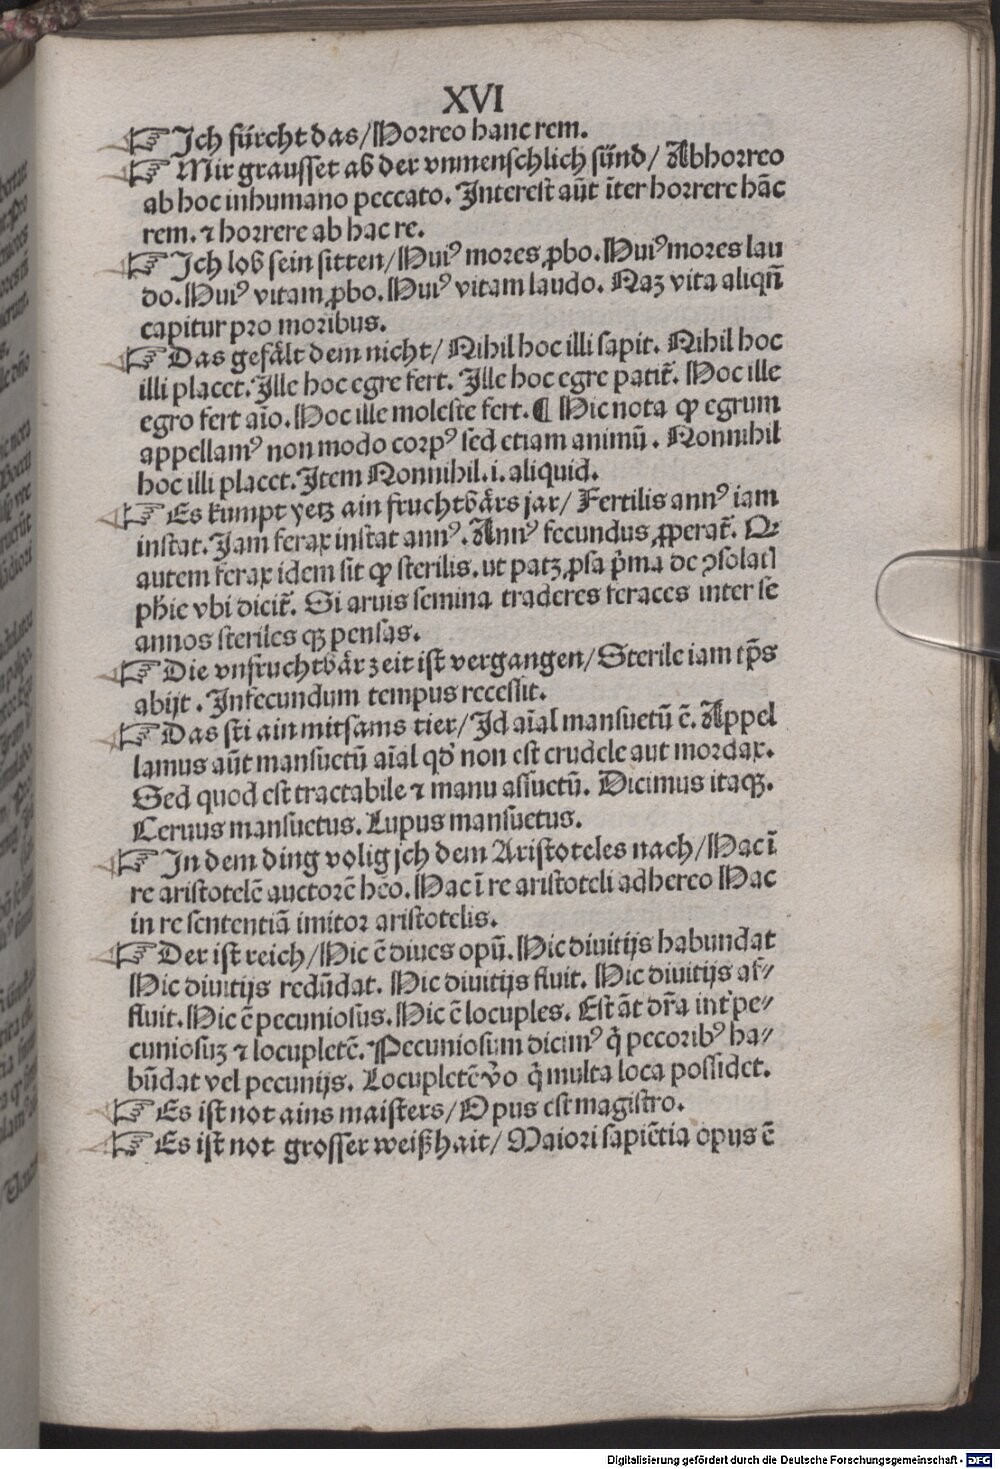 XVI
☞ Ich fürcht das/ Horreo hanc rem.
☞ Mir grausset ab der vnmenschlich sünd/ Abhorreo
ab hoc inhumano peccato. Interest aūt īter horrere hāc
rem. ⁊ horrere ab hac re.
☞ Ich lob sein sitten/ Huiꝰ mores ꝓbo. Huiꝰ mores lau
do. Huiꝰ vitam ꝓbo. Huiꝰ vitam laudo. Naꝫ vita aliqn̄
capitur pro moribus.
☞ Das gefält dem nicht/ Nihil hoc illi sapit. Nihil hoc
illi placet. Ille hoc egre fert. Ille hoc egre patit̄. Hoc ille
egro fert aīo. Hoc ille moleste fert. ¶ Hic nota ꝙ egrum
appellamꝰ non modo corpꝰ sed etiam animū. Nonnihil
hoc illi placet. Item Nonnihil .i. aliquid.
☞ Es kumpt yetz ain fruchtbårs jar/ Fertilis annꝰ iam
instat. Iam ferax instat annꝰ. Annꝰ fecundus ꝓperat̄. Q
autem ferax idem sit ꝙ sterilis. ut patꝫ ꝓsa p̄ma de ꝯsolatī
ph̄ie vbi dicit̄. Si aruis semina traderes feraces inter se
annos steriles qꝫ pensas.
☞ Die vnfruchtbår zeit ist vergangen/ Sterile iam tp̄s
abijt. Infecundum tempus recessit.
☞ Das sti ain mitsams tier/ Id aīal mansuetū ē. Appel
lamus aūt mansuetū aīal qd̓ non est crudele aut mordax.
Sed quod est tractabile ⁊ manu assuetū. Dicimus itaqꝫ.
Ceruus mansuetus. Lupus mansuetus.
☞ In dem ding volig jch dem Aristoteles nach/ Hac ī
re aristotelē auctorē heo. Hac ī re aristoteli adhereo Hac
in re sententiā imitor aristotelis.
☞ Der ist reich/ Hic ē diues opū. Hic diuitijs habundat
Hic diuitijs redūdat. Hic diuitijs fluit. Hic diuitijs af⸗
fluit. Hic ē pecuniosus. Hic ē locuples. Est āt dr̄a int̓ pe⸗
cuniosuꝫ ⁊ locupletē. Pecuniosum dicimꝰ q̇ pecoribꝰ ha⸗
būdat vel pecunijs. Locupletē v̓o q̇ multa loca possidet.
☞ Es ist not ains maisters/ Opus est magistro.
☞ Es ist not grosser weißhait/ Maiori sapiētia opus ē
Digitalisierung gefördert durch die Deutsche Forschungsgemeinschaft - DFG